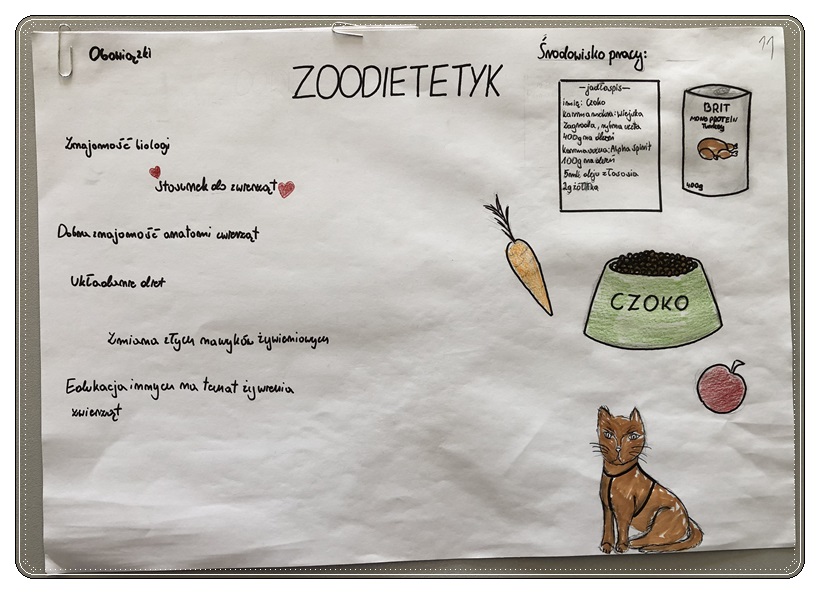 Obowiązki
Środowisko pracy:
11
ZOODIETETYK
Znajomość biologi
Stosunek do zwierząt
Dobra znajomość anatomi zwierząt
Układanie diet
Zmiana złych nawyków żywieniowych
Edukacja innych na temat żywienia
zwierząt
—jadłospis—
imię: Czoko
karma mokra: Wiejska
Zagroda,
400g na dzień
karma sucha: Alpha Spirit
100g na dzień
5ml oleju z łososia
2g żółtka
BRIT
MONO PROTEIN
Turkey
400g
CZOKO